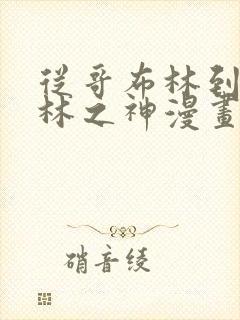 從哥布林到
林之神漫畫
硝音綾